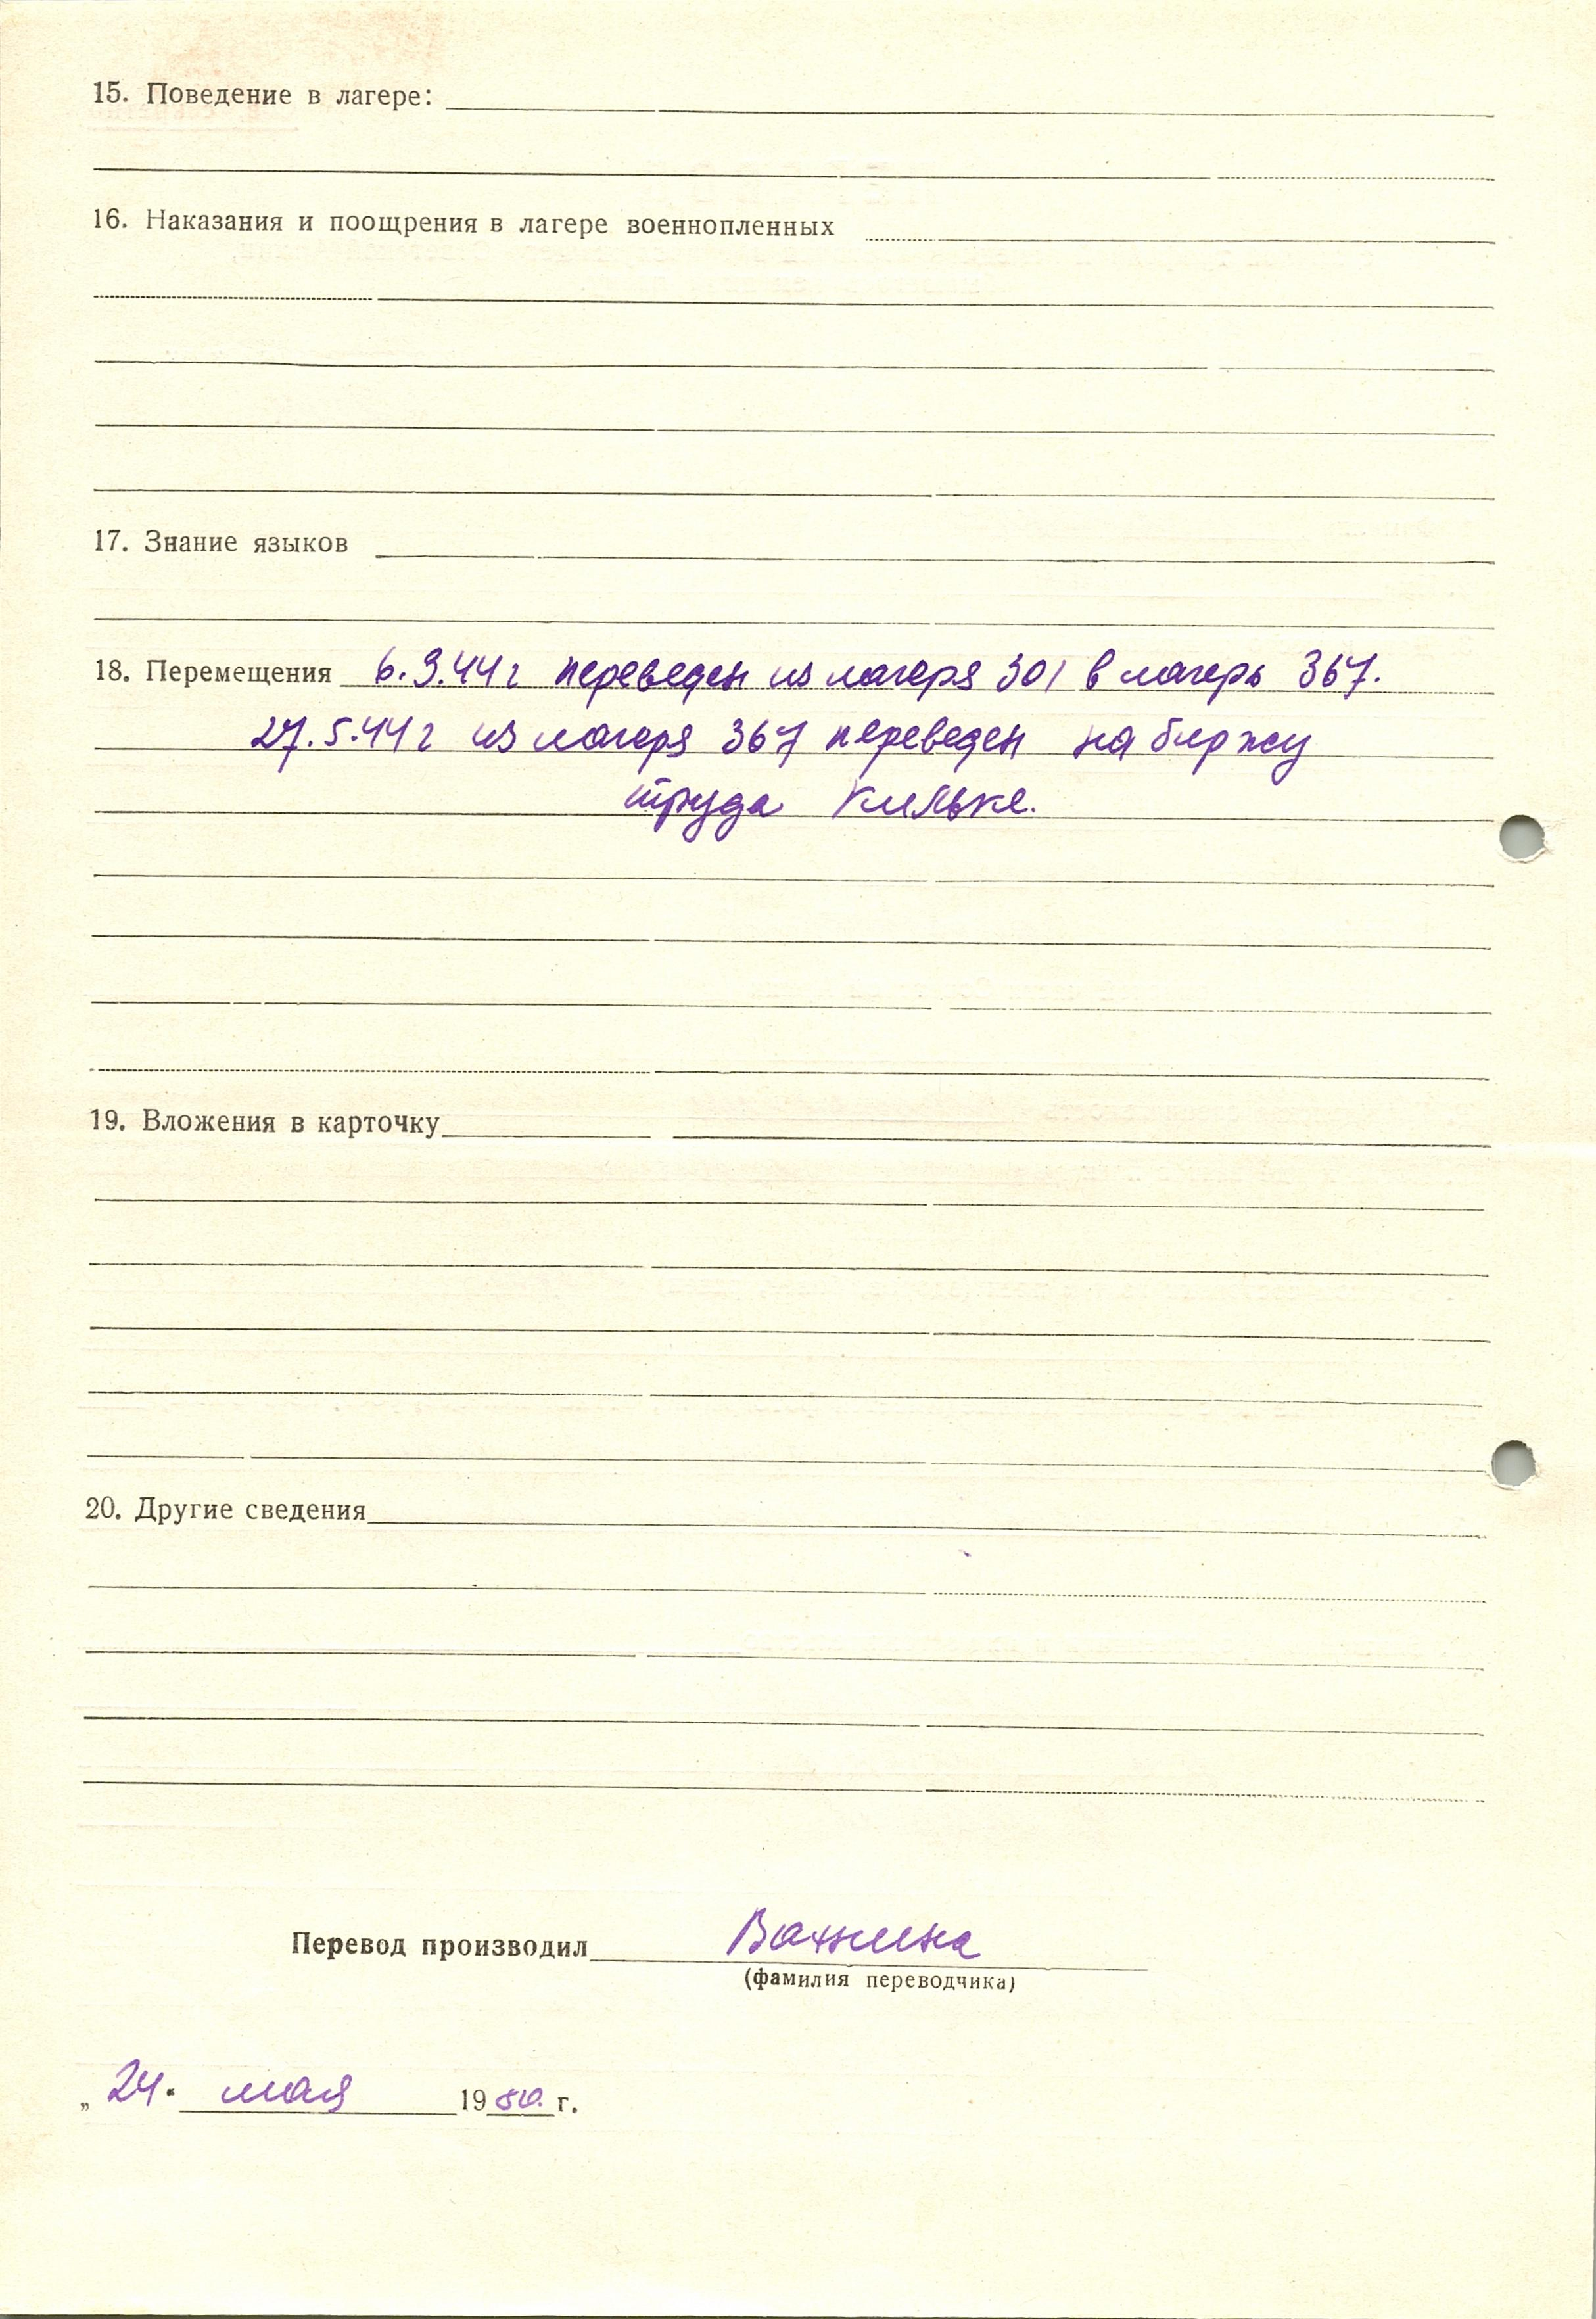 15. Поведение в лагере:
16. Наказания и поощрения в лагере военнопленных
17. Знание языков
18. Перемещения 6.3.44 г переведен из лагеря 301 в лагерь 367.
27.5.44 г из лагеря 367 переведен на биржу
труда Кильке.
19. Вложения в карточку
20. Другие сведения
Перевод производил
(фамилия переводчика)
„ 24. мая 1950. г.